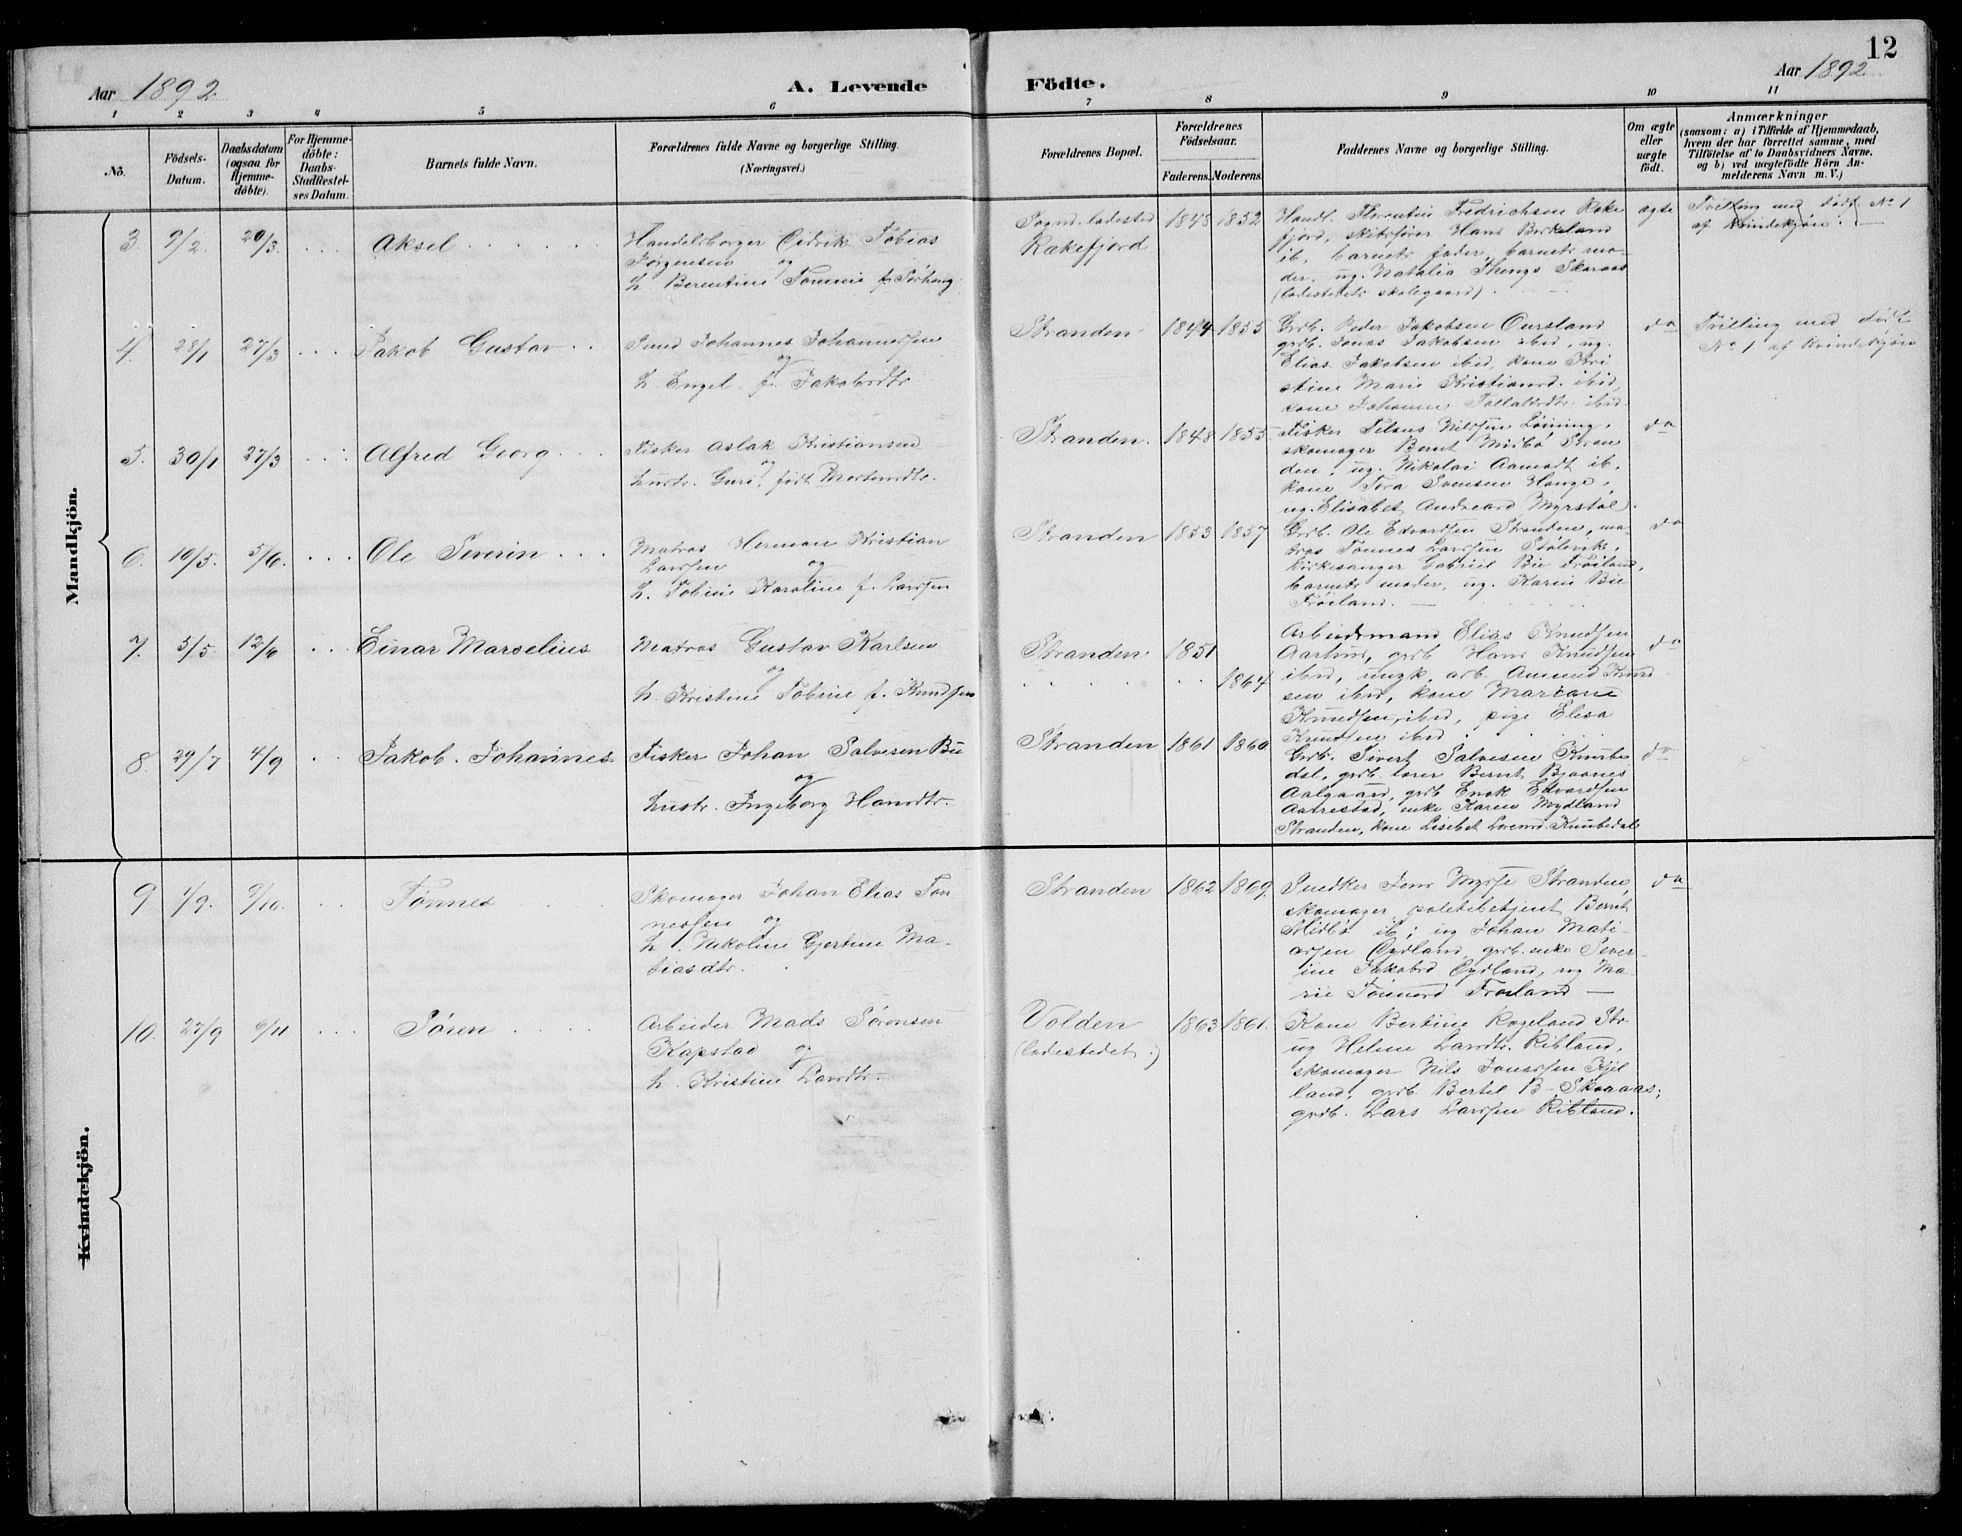 12
Aar 1892.
A. Levende Födte.
Aar 1892
1 2 3 4 5 6 7 8 9 10 11
No.
Födsels-Datum.
Daabsdatum (ogsaa for Hjemmedöbte).
For Hjemmedöbte: Daabs-Stadfæstelses Datum.
Barnets fulde Navn.
Forældrenes fulde Navne og borgerlige Stilling.
(Næringsvei.)
Forældrenes Bopæl.
Forældrenes Födselsaar.
Faderens. Moderens.
Faddernes Navne og borgerlige Stilling.
Om ægte eller uægte födt.
Anmærkninger
(saasom: a) i Tilfælde af Hjemmedaab,
hvem der har forrettet samme, med
Tilföielse af to Daabsvidners Navne,
og b) ved uægtefödte Börn Anmelderens Navn m. V.)
Mandkjön.
3. 9/2. 20/3. Aksel
Handelsborger Tobias
Jörgensen og
h. Berentine Tomine f.
Sognd. ladested
Rækefjord
1848 1852
Handl. Florentin Fredrichsen Reke
fjord, Hans Birkeland
ib, barnets fader, barnets mo-
der, ug. Natalia Skaraas
(ladestedets skolegaard).
ægte
Tvilling med födt No 1
af kvindekjön.
4. 28/1 27/3 Jakob Gustav
Smed Johannes Johannessen
og
h. Engel f. Jakobsdtr
Stranden 1844 1855
Grdb. Peder Jakobsen
grdb. Jonas Jakobsen ibid, ug.
Elias Jakobsen ibid, kone Kri
stine Marie Kristiansd. ibid,
kone Johanne ibid.
do
Tvilling med födt
No 1 af kvindekjön
5. 30/1 27/3 Alfred Georg
Fisker Aslak Kristiansen
og
hustr. Guri, födt
Stranden. 1848 1855.
Fisker Nilssen
skomager Bernt Midbö Stran
den, ug. Nikolai Aamodt ib.
kone Tora Svensen Hauge,
ug. Elisabet Myrstöl.
do
6. 10/5. 5/6. Ole Severin
Matros Herman Kristian
Larssen og
h. Tobine Karoline f. Larssen
Stranden 1853 1857
Grdb. Ole Edvardsen Stranden, ma-
tros Tönnes Larssen Stölevik,
kirkesanger Gabriel Bie Fröiland,
barnets moder, ug. Karen Bie
Fröiland.
do
7. 5/5. 12/6 Einar Marselius
Matros Gustav Karlsen
og
h. Kristine Tobine f. Knudsen
Stranden 1851
1864.
Arbeidsmand Elias Knudsen
grdb Hans Knudsen
ibid, ungk. arb. Amund Knud
sen ibid, kone Mariane
Knudsen, ibid, pige Elisa
Knudsen ibid.
do
8. 29/7 4/9 Jakob Johannes
Fisker Johan Salvesen Bu
og
hustr. Ingeborg Hansdtr.
Stranden 1861 1860
Grdb. Sivert Salvesen Knube
dal, grdb. Bernt
Aalgaard, grdb Enok Edvardsen
Aarrestad, enke Karen Mydland
Stranden, kone Lisebet Knubedal
do
Kvindekjön.
9 1/9. 9/10. Tönnes
Skomager Johan Elias Tön
nessen og
h. Nikoline Gjertine Ma-
tiasdtr.
Stranden 1862 1869.
Snedker Jens Myrse Stranden,
skomager politibetjent Bernt
Midbö ib; ug Johan Mati-
assen Eydland, grdb. enke Sever-
ine Jakobsd Eydland, ug Ma-
rie Fröiland
do
10. 27/9 6/11 Sören
Arbeider Mads Sörensen
Kapstad og
h. Kristine Larsdtr.
Volden
(ladestedet.)
1863 1861.
Kone Bertine Rægeland Str
ug Helene Larsdtr. Ribland,
skomager Nils Jonassen Kjel
land, grdb. Bertel B. Skaraas;
grdb. Lars Larssen Ribland.